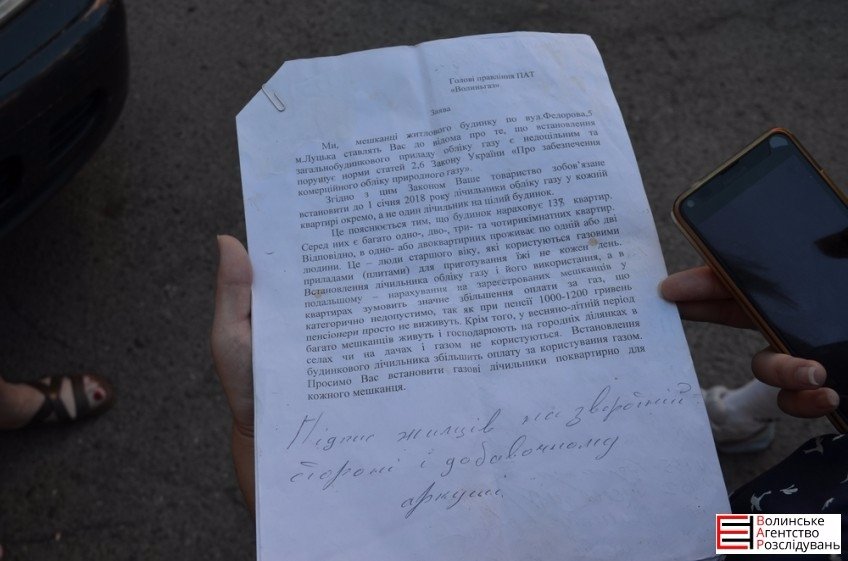 Голові правління ПАТ
«Волиньгаз»
Заява
Ми, мешканці житлового будинку по вул.Федорова,5
м.Луцька ставлять Вас до відома про те, що встановлення
загальнобудинкового приладу обліку газу є недоцільним та
порушує норми статей 2,6 Закону України «Про забезпечення
комерційного обліку природного газу».
Згідно з цим Законом Ваше товариство зобов'язане
встановити до 1 січня 2018 року дічильники обліку газу у кожній
квартирі окремо, а не один лічильник на цілий будинок.
Це пояснюється тим, що будинок нараховує 13 квартир.
Серед них є багато одно-, дво-, три- та чотирикімнатних квартир.
Відповідно, в одно- або двоквартирних проживає по одній або дві
людини. Це – люди старшого віку, які користуються газовими
приладами (плитами) для приготування їжі не кожен день.
Встановлення дічильника обліку газу і його використання, а в
подальшому – нарахування на зареєстрованих мешканців у
квартирах зумовить значне збільшення оплати за газ, що
категорично недопустимо, так як при пенсії 1000-1200 гривень
пенсіонери просто не виживуть. Крім того, у весняно-літній період
багато мешканців живуть і господарюють на городніх ділянках в
селах чи на дачах і газом не користуються. Встановлення
будинкового лічильника збільшить оплату за користування газом.
Просимо Вас встановити газові дічильники поквартирно для
кожного мешканця.
Підпис жильців на зворотній
стороні і добавочному
аркуші.
Волинське
Агентство
Розслідувань